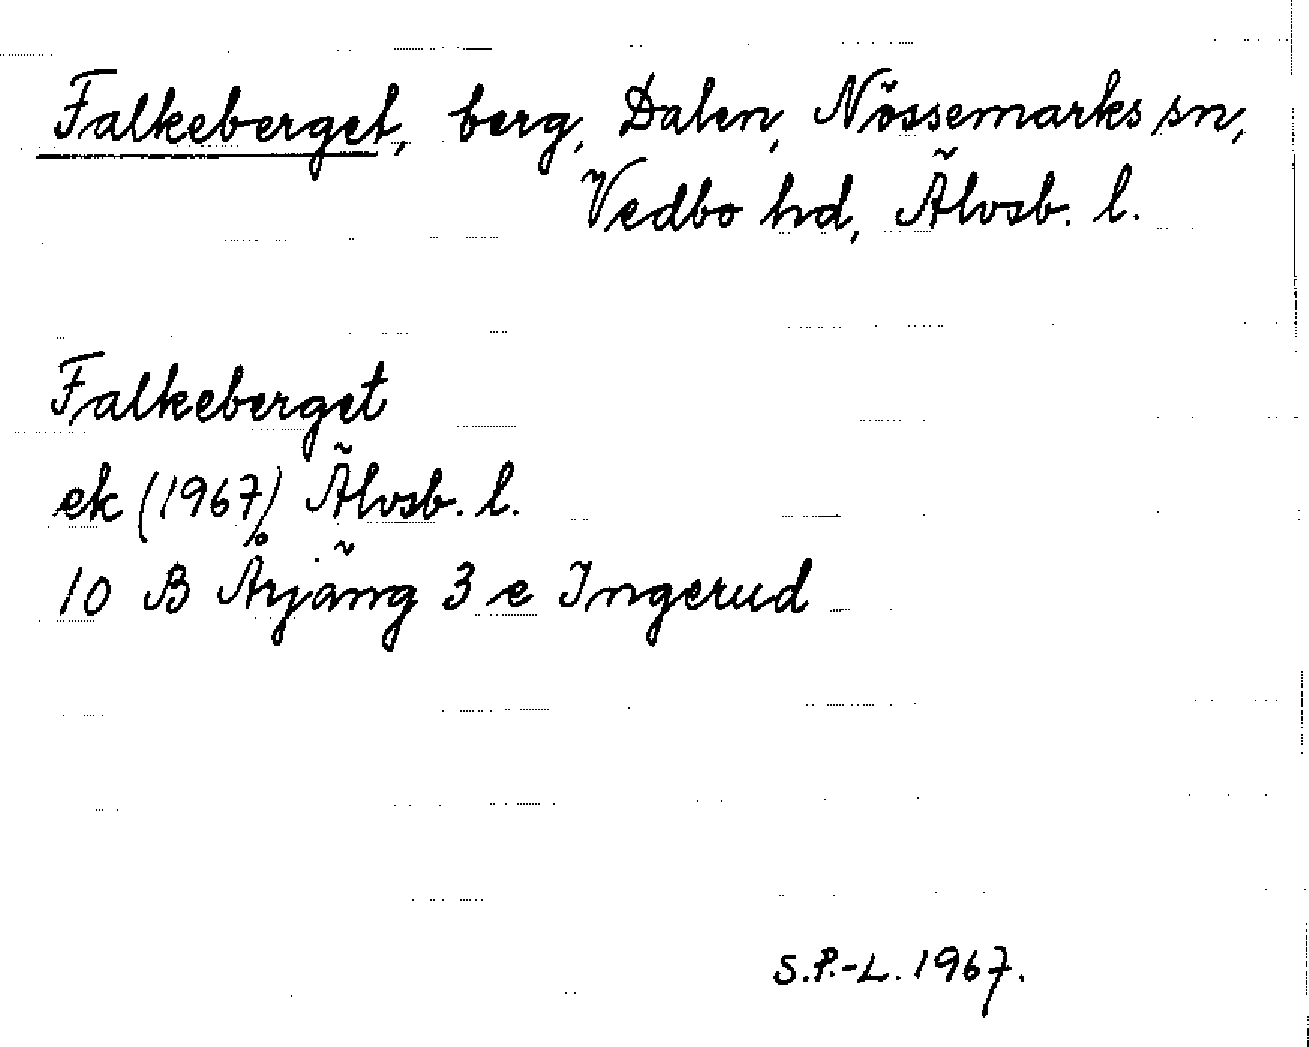 Falkeberget, berg, Dalen, Nössemarks sn,
Vedbo hd, Älvsb. l.
Falkeberget
ek (1967) Älvsb. l.
10 B Årjäng 3 e Ingerud
S.P.-L. 1967.